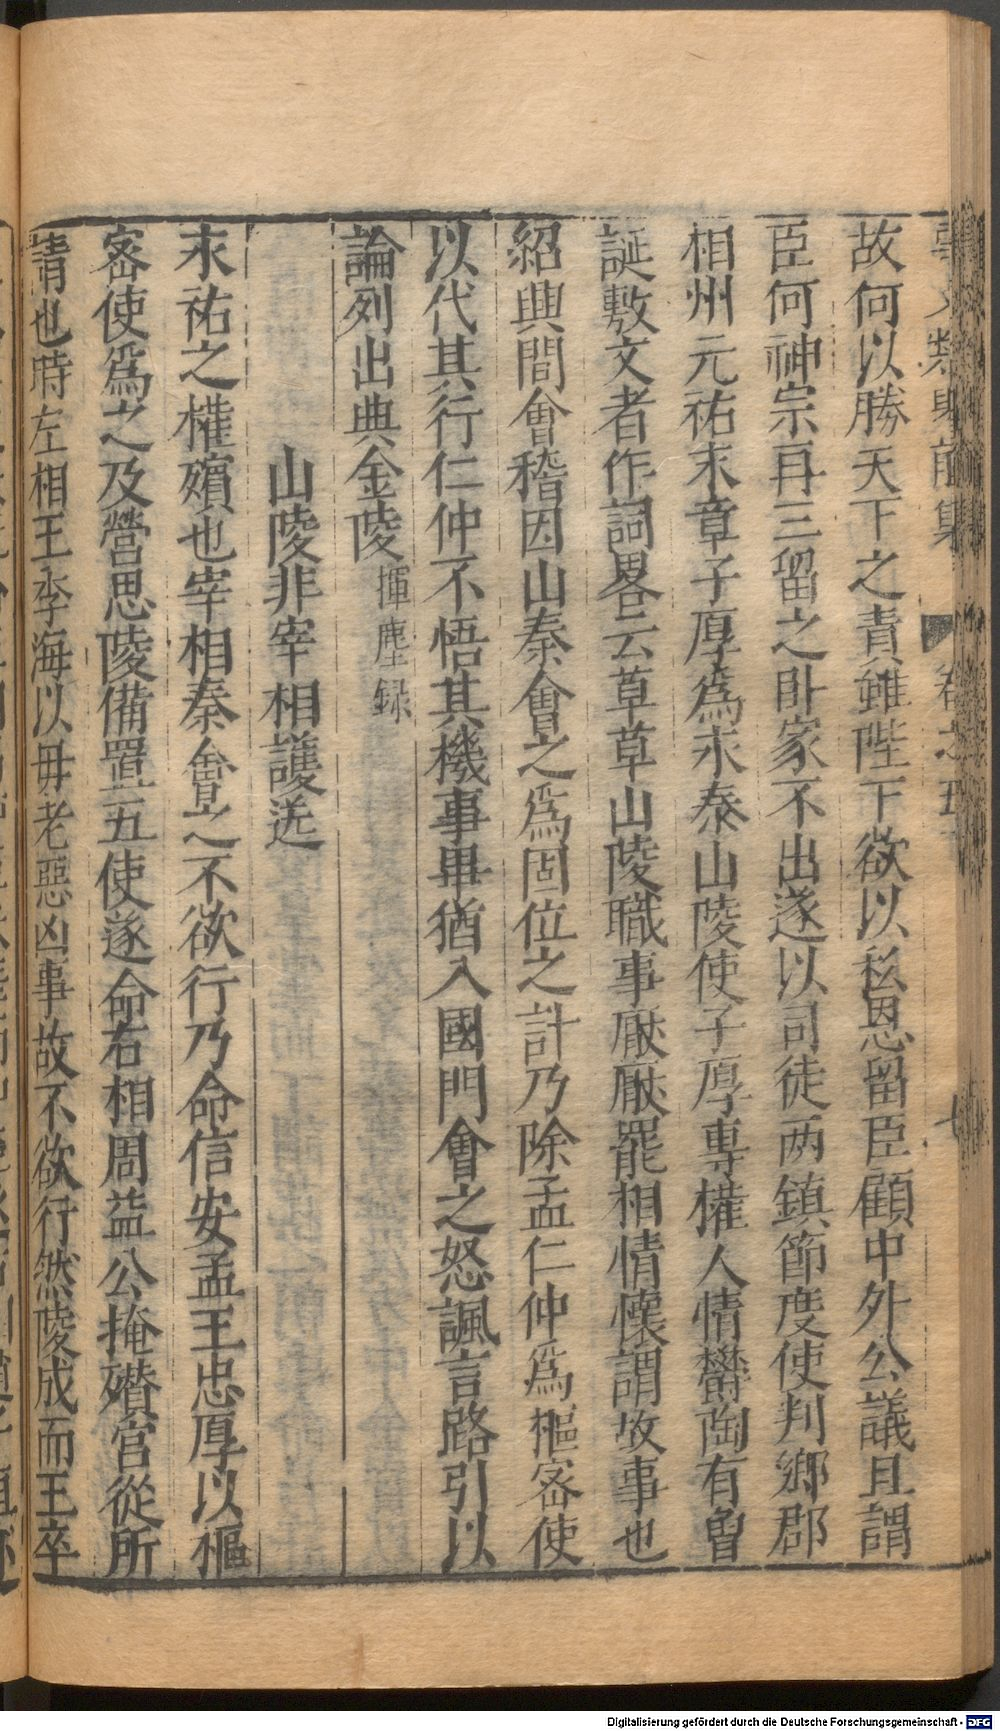 故何以勝天下之責雖陛下欲以私恩留臣顧中外公議且謂
臣何神宗再三留之卧家不出遂以司徒两鎮節度使判鄉郡
相州元祐末章子厚為永泰山陵使子厚專權人情欝陶有曾
誕敷文者作詞畧云草草山陵職事厭厭罷相情懷謂故事也
紹興間會稽因山秦會之為固位之計乃除孟仁仲為樞密使
以代其行仁仲不悟其機事畢猶入國門會之怒諷言路引以
論列出典金陵揮塵録
山陵非宰相護送
永祐之欑殯也宰相秦會之不欲行乃命信安孟王忠厚以樞
密使爲之及營思陵備置五使遂命右相周益公掩欑宫從所
請也時左相王季海以毋老惡凶事故不欲行然陵成而王卒
類 前集 卷之五
Digitalisierung gefördert durch die Deutsche Forschungsgemeinschaft - DFG